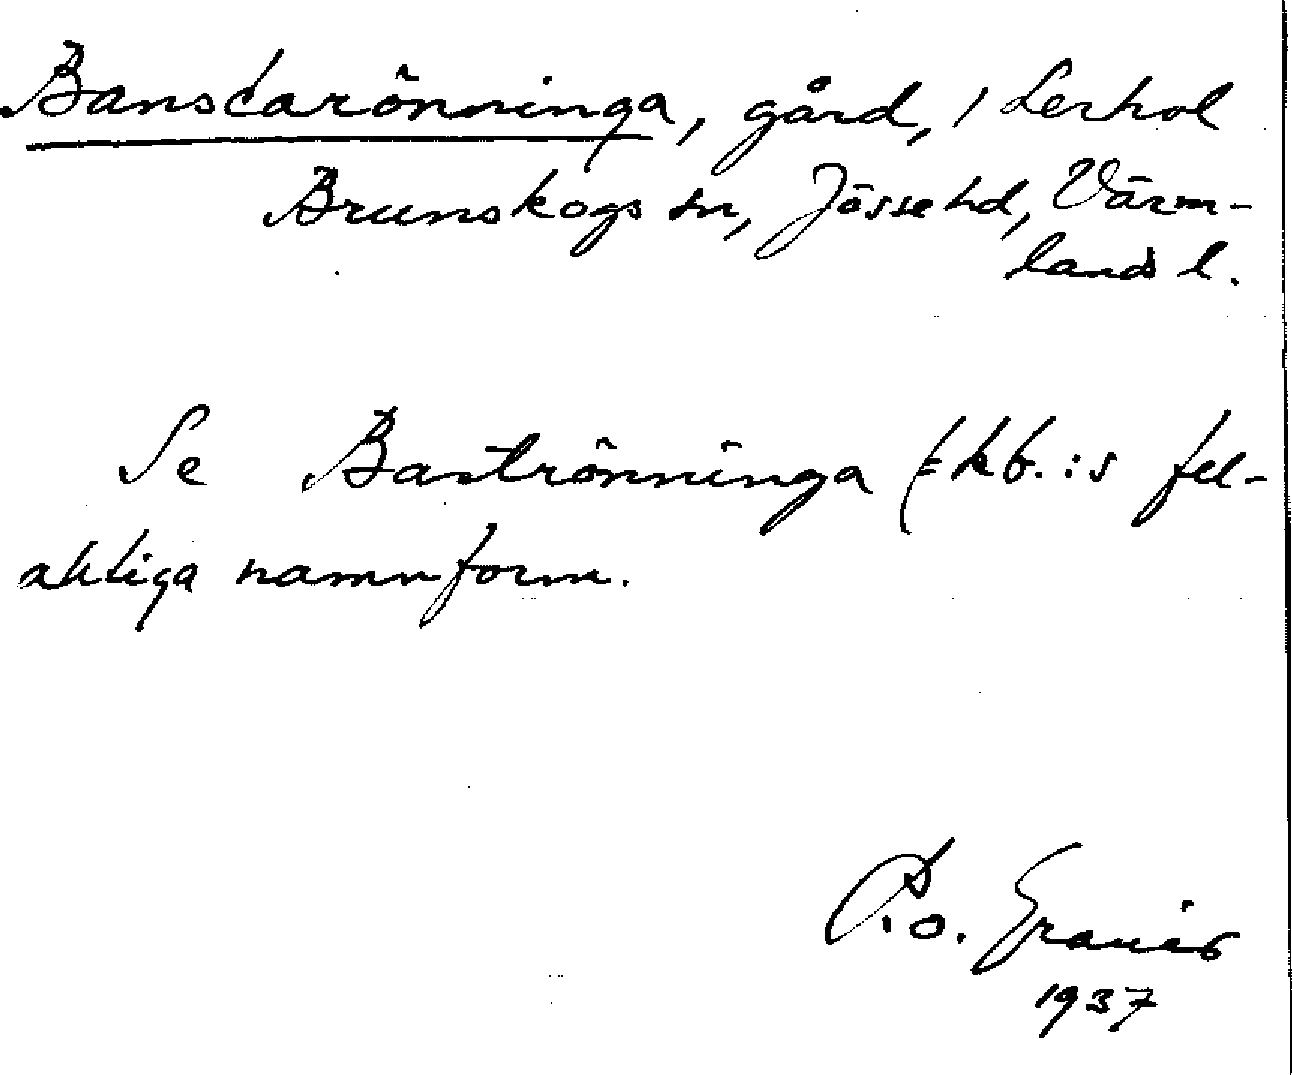 Banstarönninga, gård, i Lerhol
Brunskogs sn, Jösse hd, Värm-
lands l.
Se Baströnninga (= kb.:s fel-
aktiga namnform.
P. o. Granér
1937